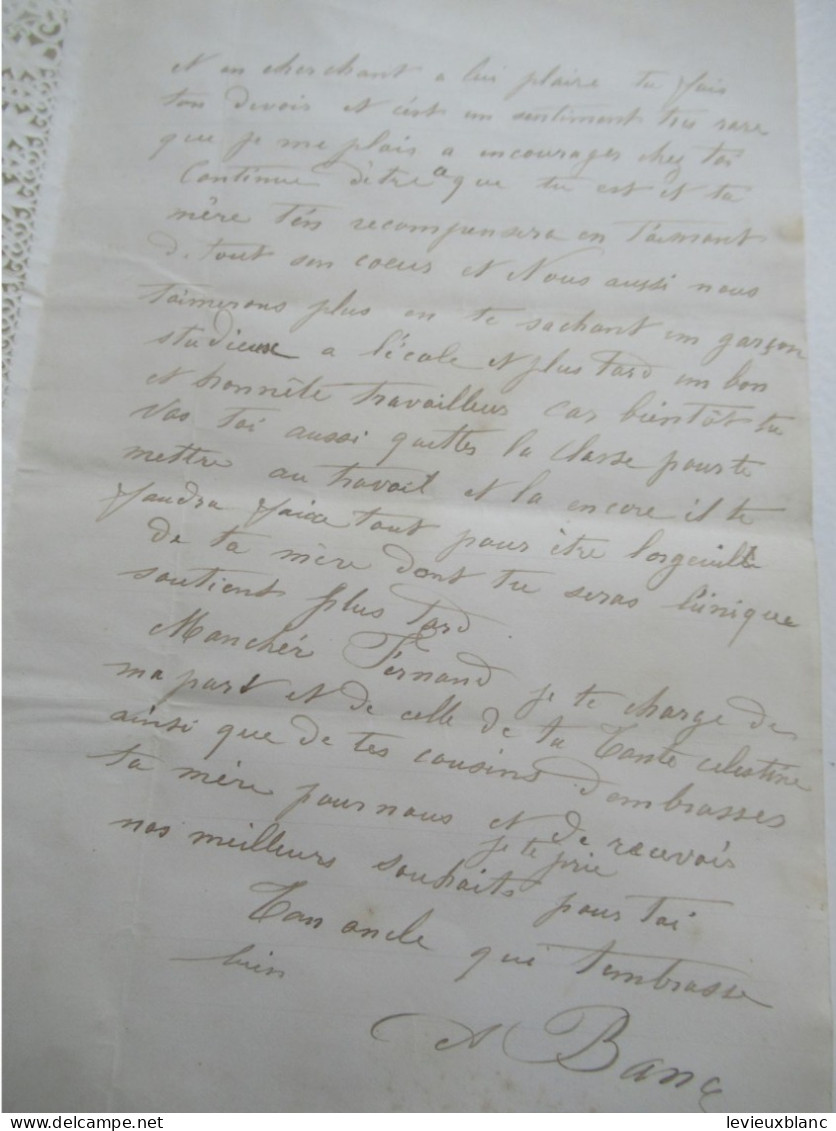 et en cherchant a lui plaire tu fais
ton devoir et c'est un sentiment tres rare
que je me plais a encourager chez toi
Continue d'être a que tu est et ta
mère t'én recompensera en t'aimant
de tout son coeur et Nous aussi nous
t'aimerons plus en te sachant un garçon
studieux a l'école et plus tard un bon
et honnête travailleur car bientôt tu
vas toi aussi quitter la classe pour te
mettre au travail et la encore il te
faudra faire tout pour être l'orgeuil
de ta mère dont tu seras l'únique
soutient plus tard.
Moncher Fernand je te charge de
ma part et de celle de ta Tante celestine
ainsi que de tes cousins d'embrasser
ta mère pour nous et de recevoir
je te prie
nos meilleurs souhaits pour toi
Ton oncle qui t'embrasse
bien
A Banc
www.delcampe.net
levieuxblanc